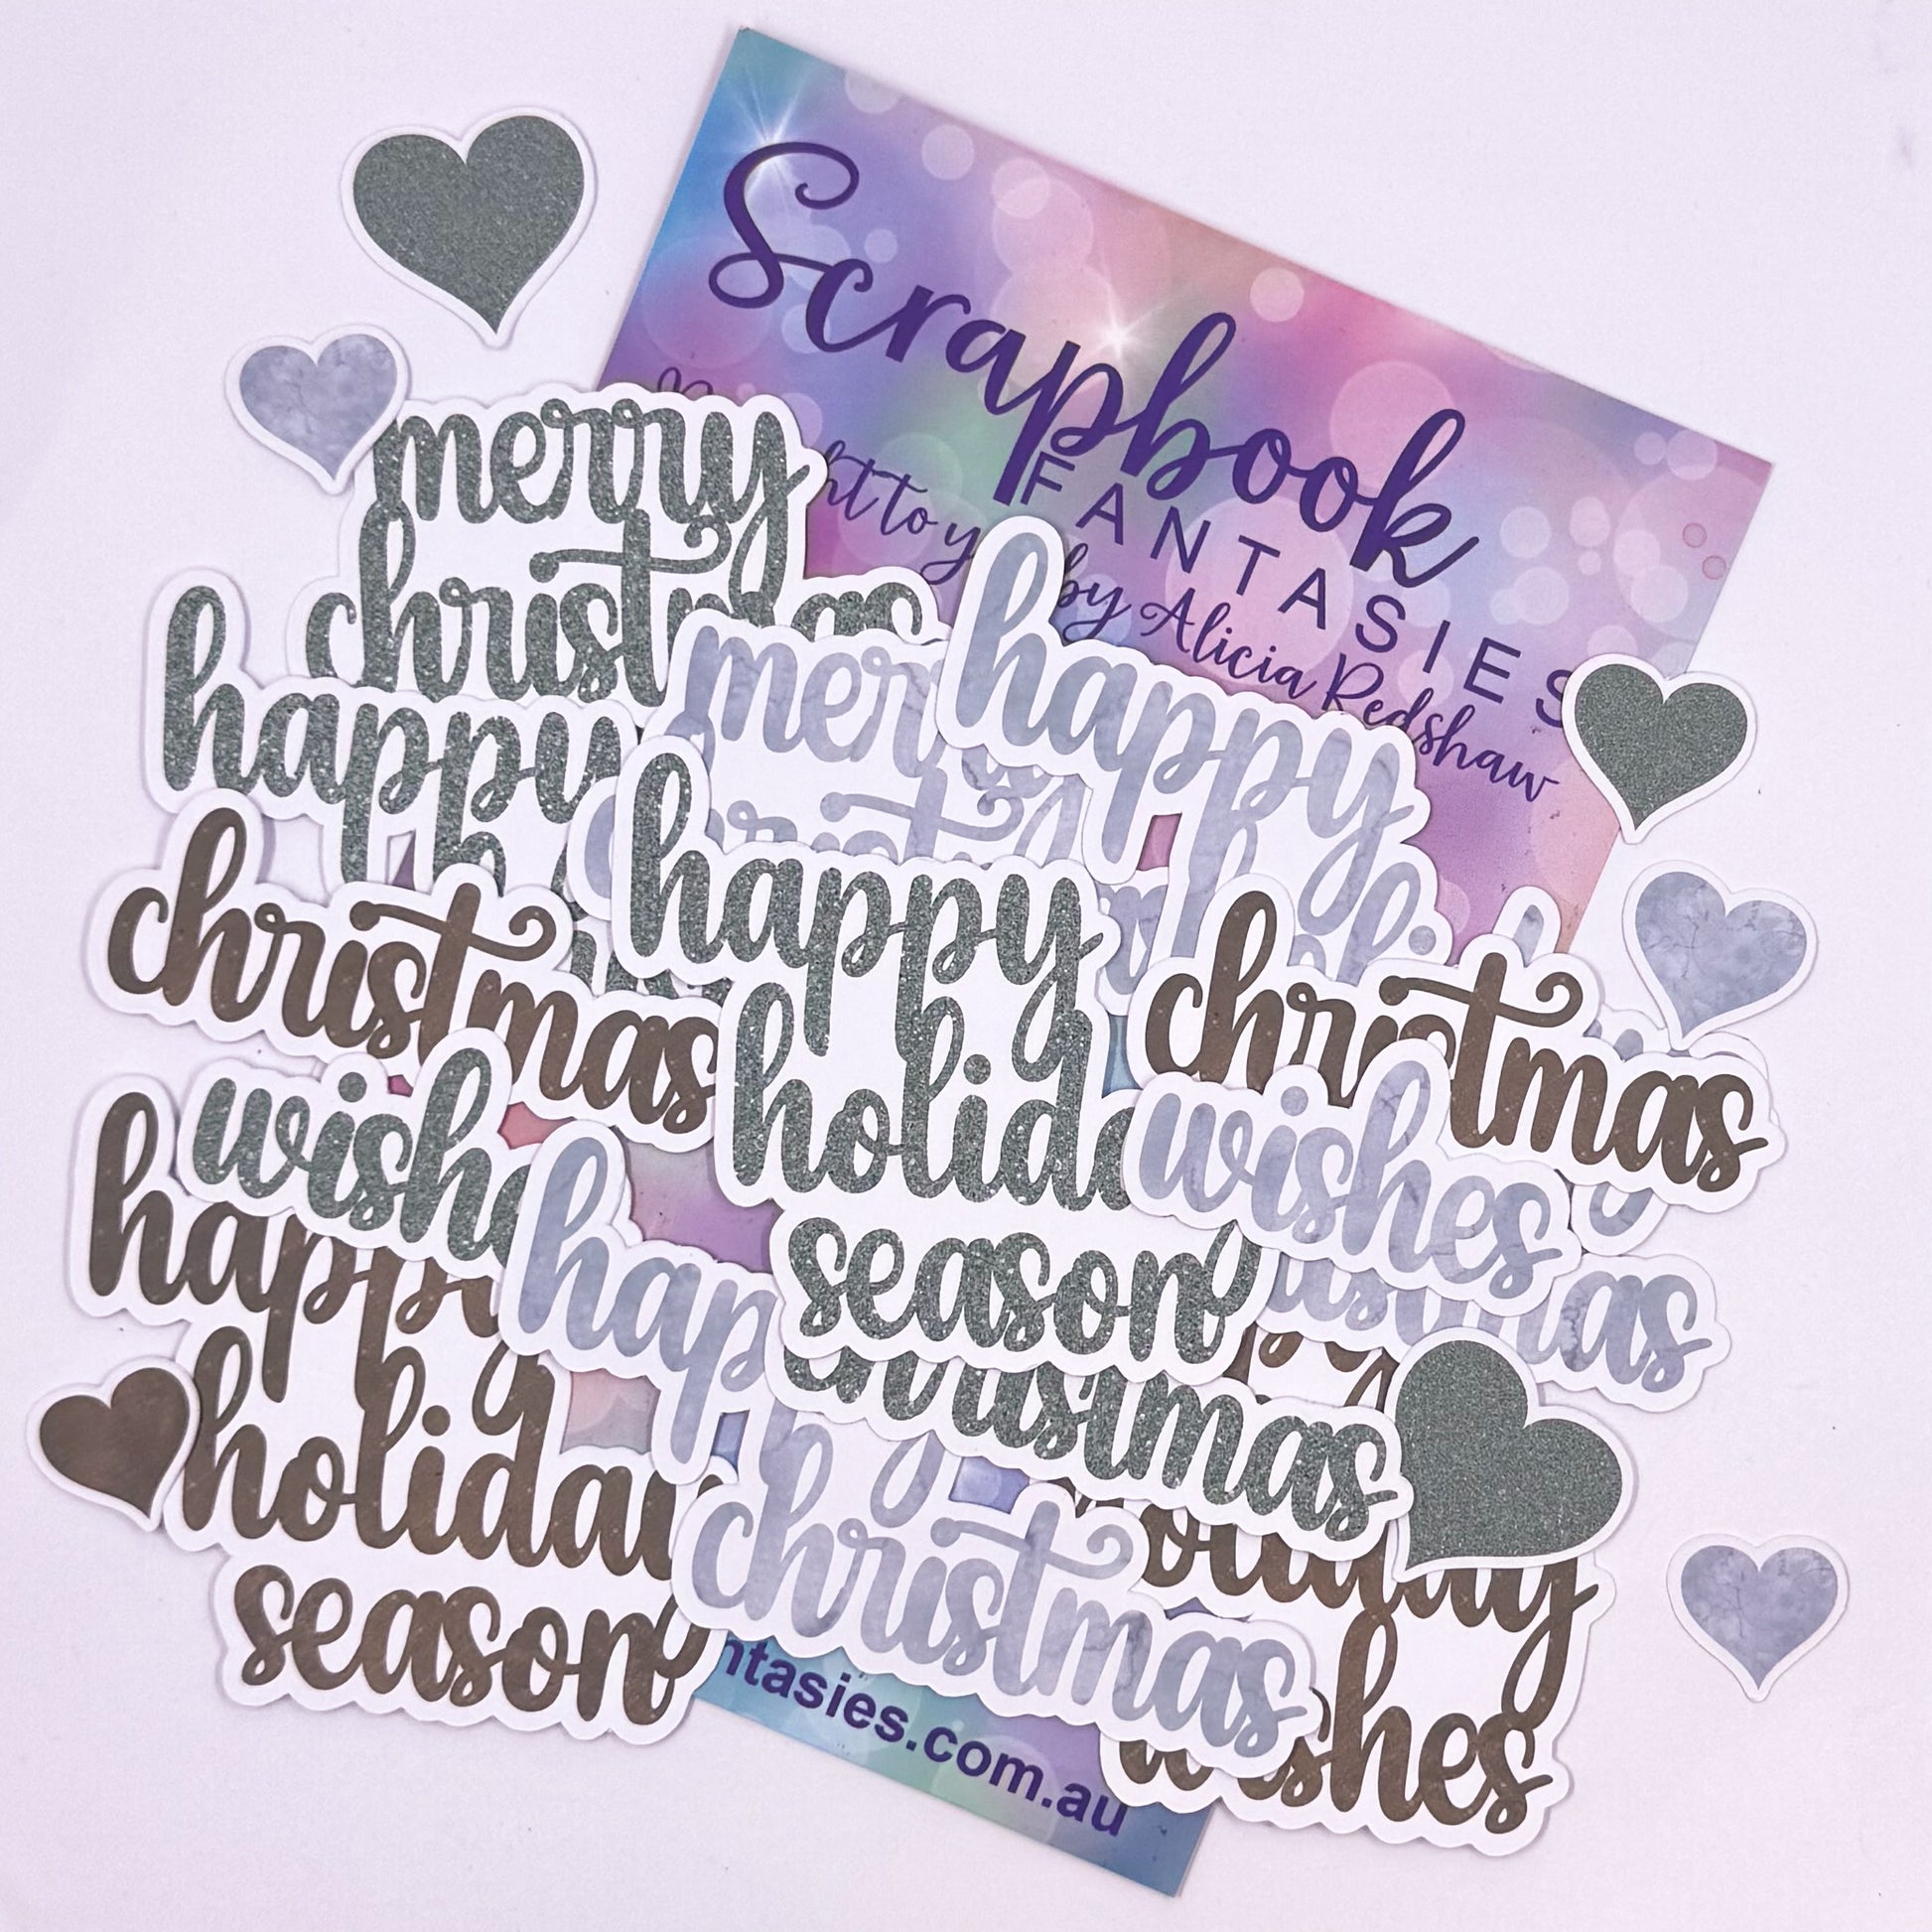 Scrapbook
FANTASIES
by Alicia Redshaw
merry
christmas
happy
merry
happy
happy
holiday
season
christmas
christmas
wishes
wishes
happy
holiday
season
happy
christmas
christmas
holiday
wishes
ntasies.com.au